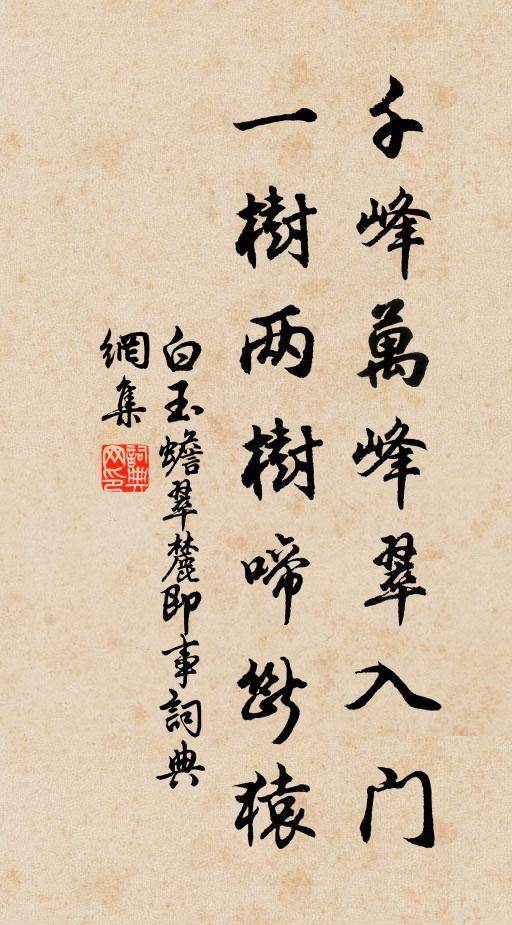 千峰萬峰翠入门
一樹两樹啼断猿
白玉蟾翠麓即事詞典
網集
詞典
网印